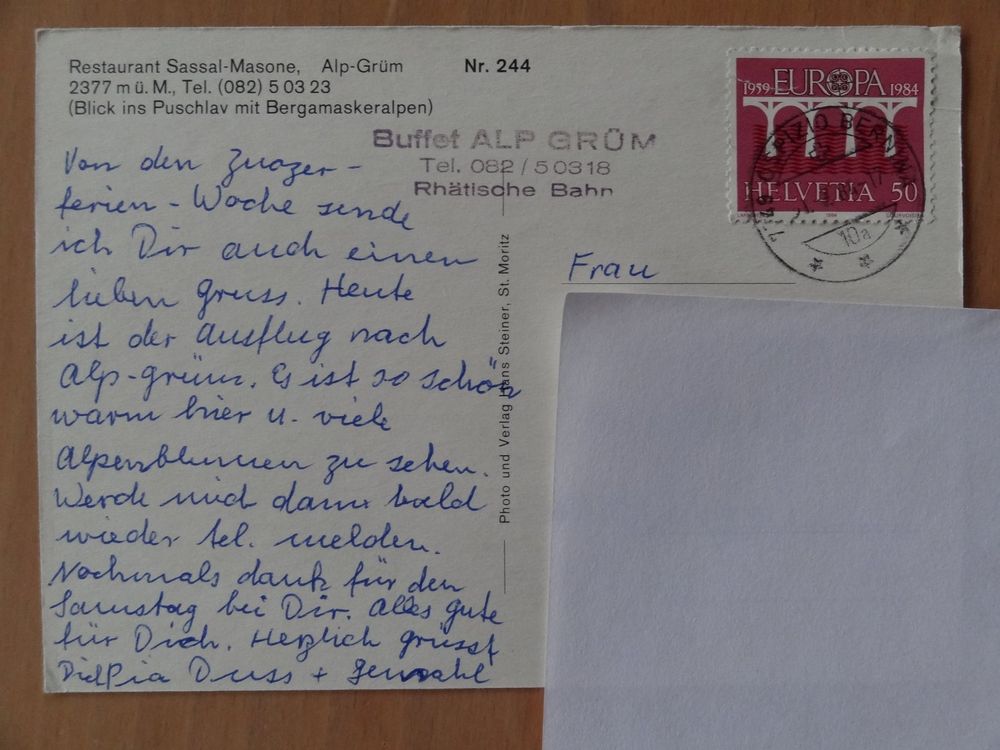 Restaurant Sassal-Masone, Alp-Grüm Nr. 244
2377 m ü. M., Tel. (082) 5 03 23
(Blick ins Puschlav mit Bergamaskeralpen)
Buffet ALP GRÜM
Tel. 082 / 5 0318
Rhätische Bahn
1959 EUROPA 1984
HELVETIA 50
OSPIZIO BERNINA
10a
Von den Zuozer-
ferien-Woche sende
ich Dir auch einen
lieben Gruss. Heute
ist der Ausflug nach
Alp-grüm. Es ist so schön
warm hier u. viele
Alpenblumen zu sehen.
Werde mich dann bald
wieder tel. melden.
Nochmals dank für den
Samstag bei Dir. Alles gute
für Dich. Herzlich grüsst
Dich Pia Duss + Gemahl
Photo und Verlag Hans Steiner, St. Moritz
Frau